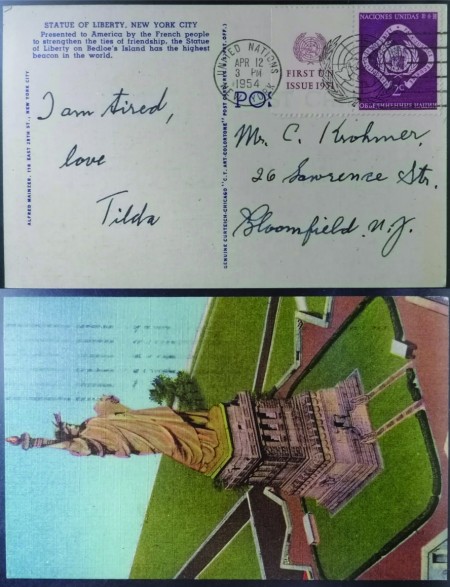 STATUE OF LIBERTY, NEW YORK CITY
Presented to America by the French people
to strengthen the ties of friendship, the Statue
of Liberty on Bedloe's Island has the highest
beacon in the world.
I am tired,
love
Tilda
ALFRED MAINZER, 118 EAST 28TH ST., NEW YORK CITY
GENUINE CURTEICH-CHICAGO "C.T. ART-COLORTONE" POST CARD
UNITED NATIONS
APR 12
3 PM
1954
FIRST UN
ISSUE 1951
PO
NACIONES UNIDAS
2c
Mr. C. Krohmer,
26 Lawrence Str.
Bloomfield N.J.